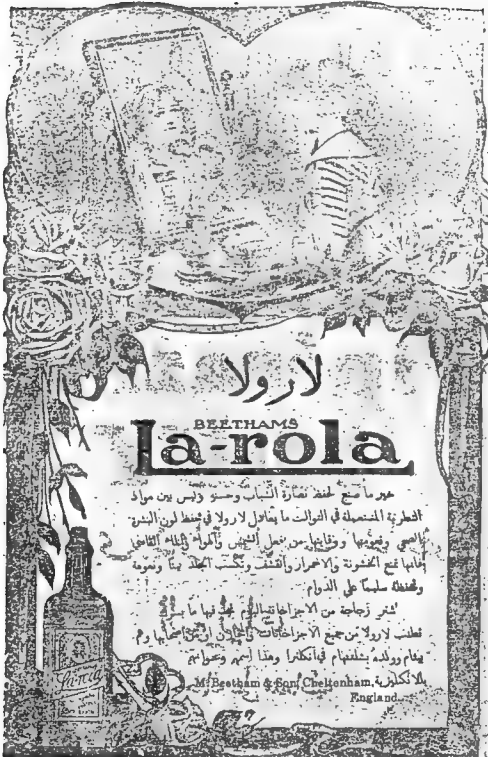 لارولا
BEETHAMS
la-rola
خير ما صنع لحفظ نضارة الشباب وحسنو وليس بين مواد
التطرية المستعملة في التوالت ما يماثل لارولا في حفظ لون البشرة
الصحي ووقايتها من فعل الشمس
فانها تمنع الخشونة والاحمرار والقشف وتكسب الجلد لينًا ونعومة
وتحفظه سليمًا على الدوام
اشترِ زجاجة من الاجزاخانة تجد فيها ما
تطلب لارولا من جميع الاجزاخانات او من اصحابها وهم
بيثام وولده بشلتنهام في انكلترا وهذا اسمهم وعنوانهم
بالانكليزية M. Beetham & Son, Cheltenham,
England.
La-rola